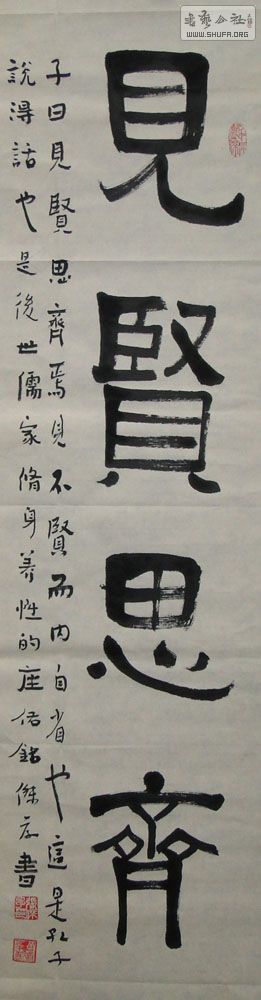 見賢思齊
子曰見賢思齊焉見不賢而內自省也這是孔子
説得話也是後世儒家脩身養性的座佑銘傑彦書
書藝公社
WWW.SHUFA.ORG